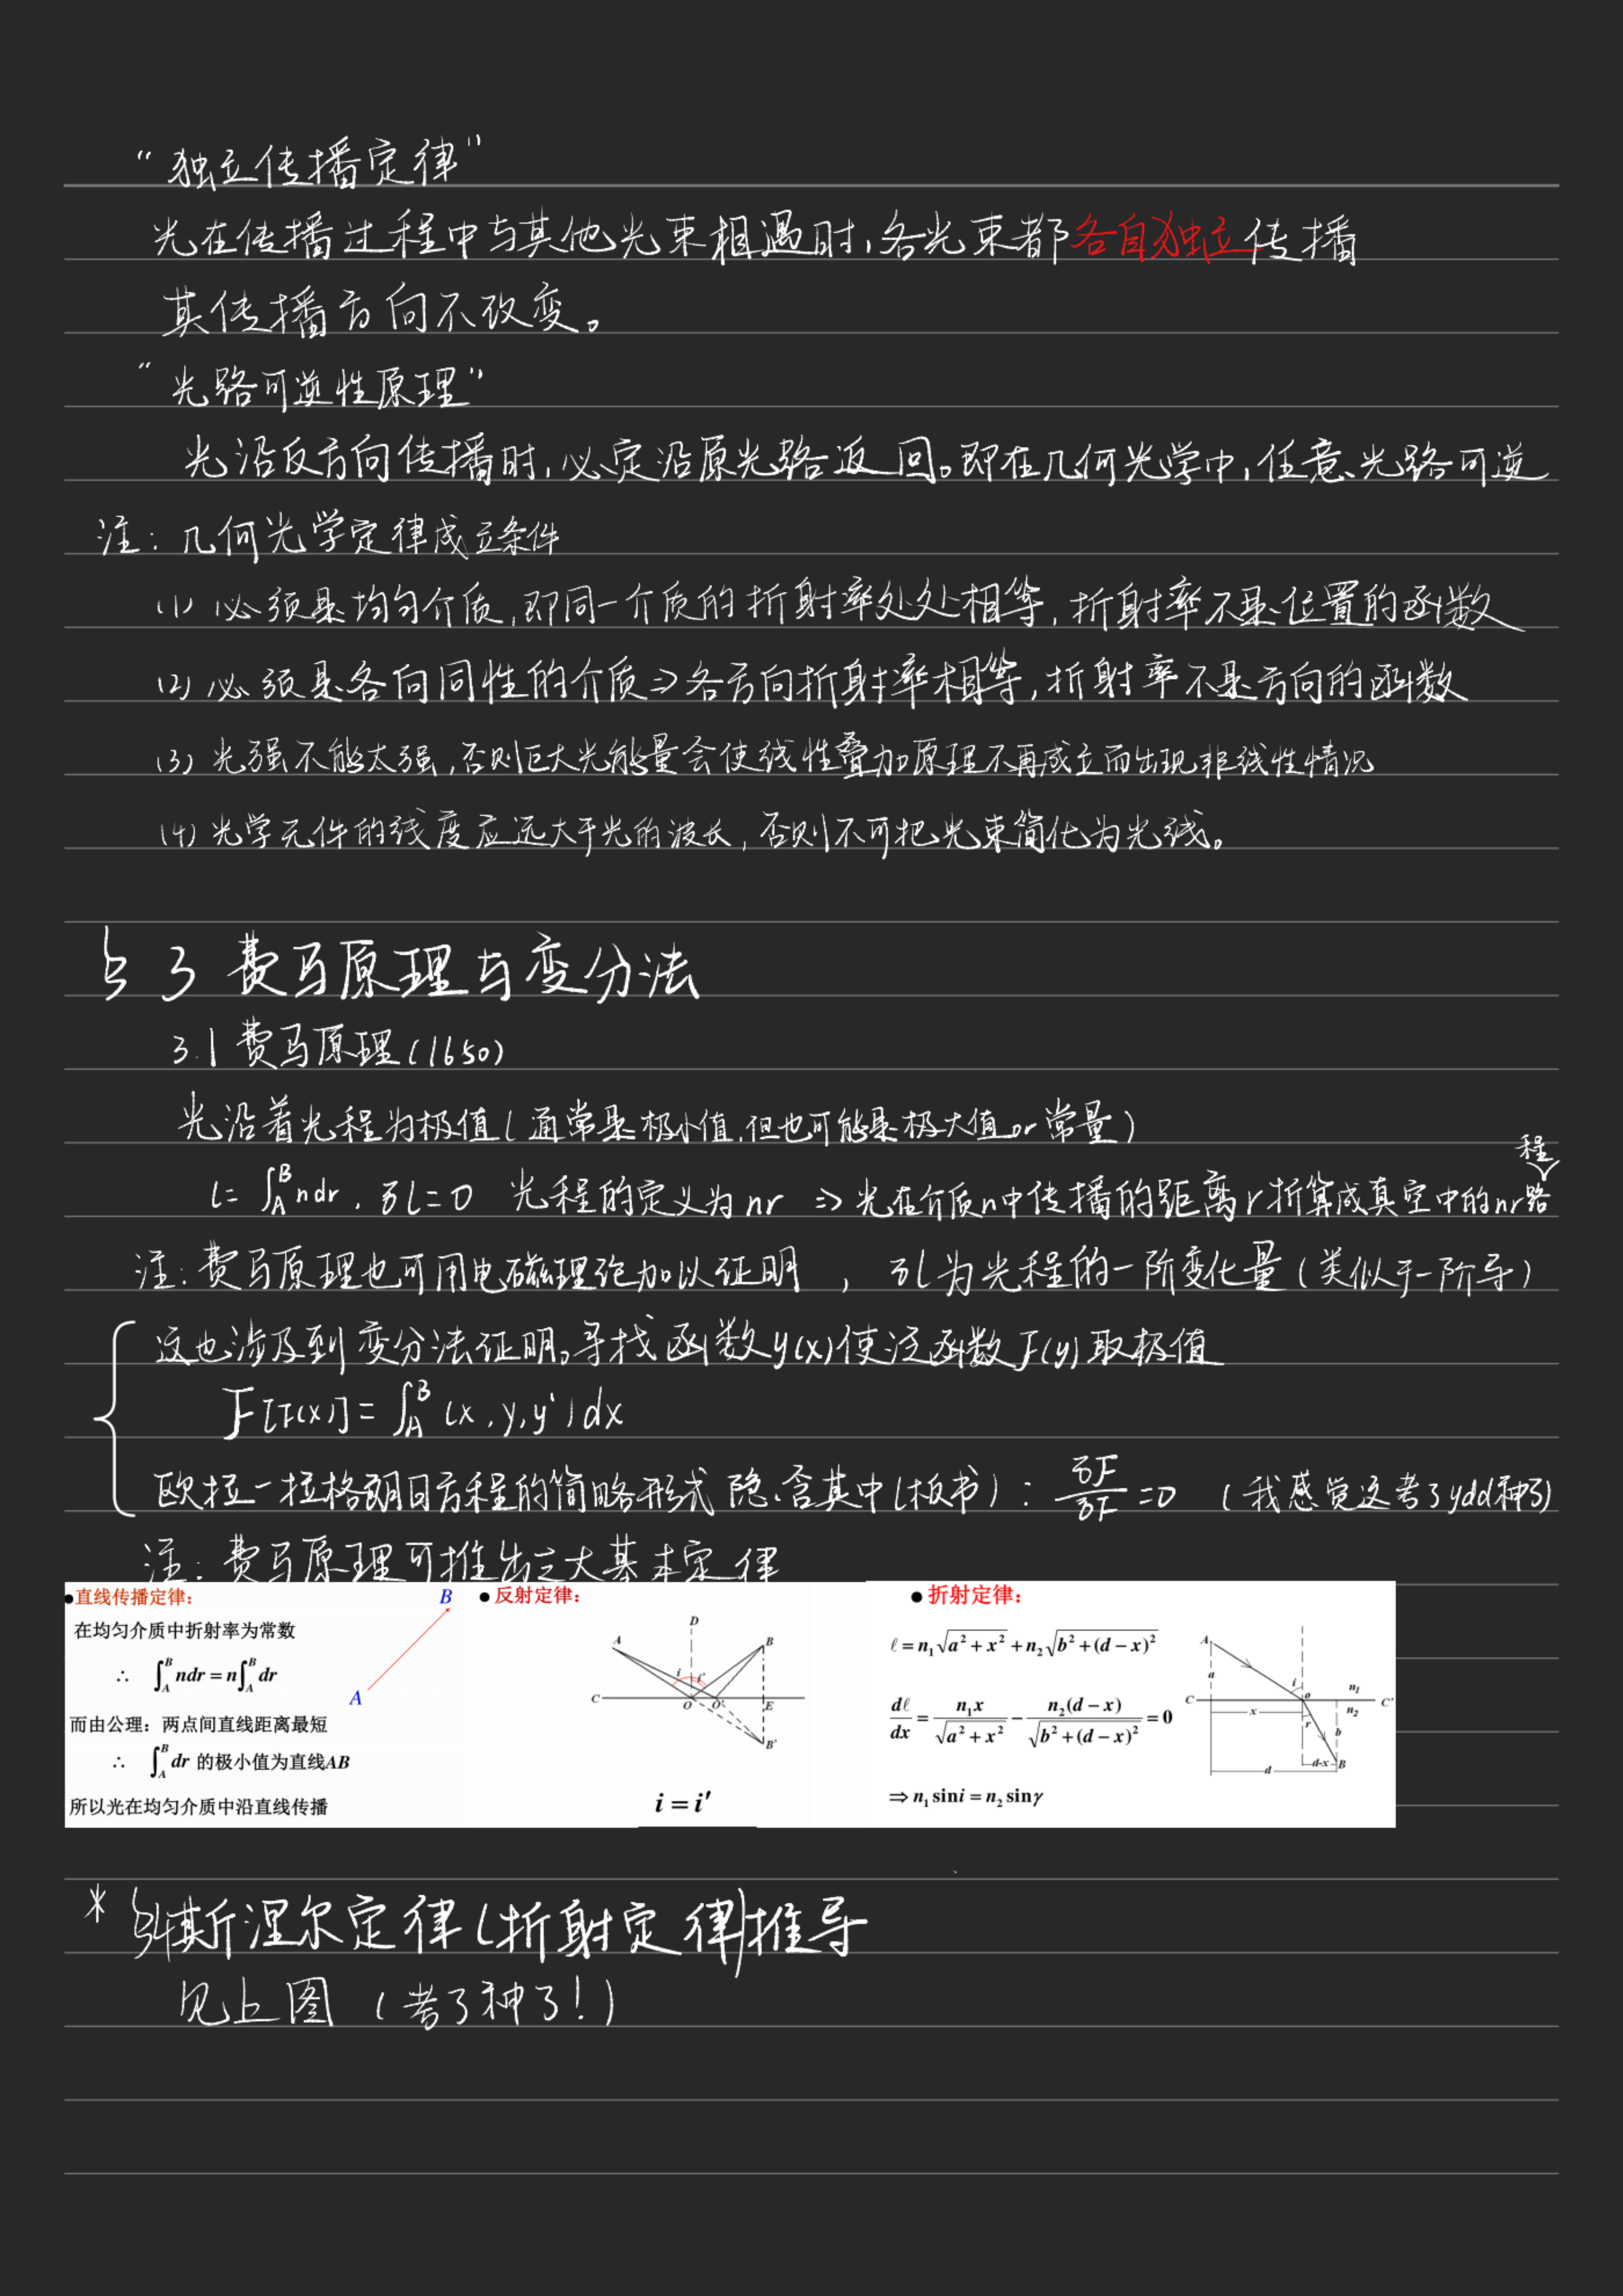 “独立传播定律”
光在传播过程中与其他光束相遇时,各光束都各自独立传播
其传播方向不改变。
“光路可逆性原理”
光沿反方向传播时,必定沿原光路返回。即在几何光学中,任意光路可逆
注:几何光学定律成立条件
(1) 必须是均匀介质,即同一介质的折射率处处相等,折射率不是位置的函数
(2) 必须是各向同性的介质⇒各方向折射率相等,折射率不是方向的函数
(3) 光强不能太强,否则巨大光能量会使线性叠加原理不再成立而出现非线性情况
(4) 光学元件的线度应远大于光的波长,否则不可把光束简化为光线。
§3 费马原理与变分法
3.1 费马原理(1650)
光沿着光程为极值(通常是极小值,但也可能是极大值or常量)
l=∫_A^B ndr, δl=0 光程的定义为nr ⇒ 光在介质n中传播的距离r折算成真空中的nr路程
注:费马原理也可用电磁理论加以证明 , δl为光程的一阶变化量(类似于一阶导)
这也涉及到变分法证明。寻找函数y(x)使泛函数F(y)取极值
F[F(x)]=∫_A^B (x,y,y')dx
欧拉一拉格朗日方程的简略形式隐含其中(板书): δF/δF=0 (我感觉这考了ydd神了)
注:费马原理可推出三大基本定律
●直线传播定律:
在均匀介质中折射率为常数
∴ ∫_A^B ndr = n∫_A^B dr
而由公理:两点间直线距离最短
∴ ∫_A^B dr 的极小值为直线AB
所以光在均匀介质中沿直线传播
B
A
●反射定律:
D
A
B
i i'
C O O' E
B'
i = i'
●折射定律:
ℓ = n₁√(a²+x²) + n₂√(b²+(d−x)²)
dℓ/dx = n₁x/√(a²+x²) − n₂(d−x)/√(b²+(d−x)²) = 0
⇒ n₁ sin i = n₂ sin γ
A
a
i n₁
C x o C'
n₂
r b
d d-x B
* 斯涅尔定律(折射定律)推导
见上图 (考了神了!)